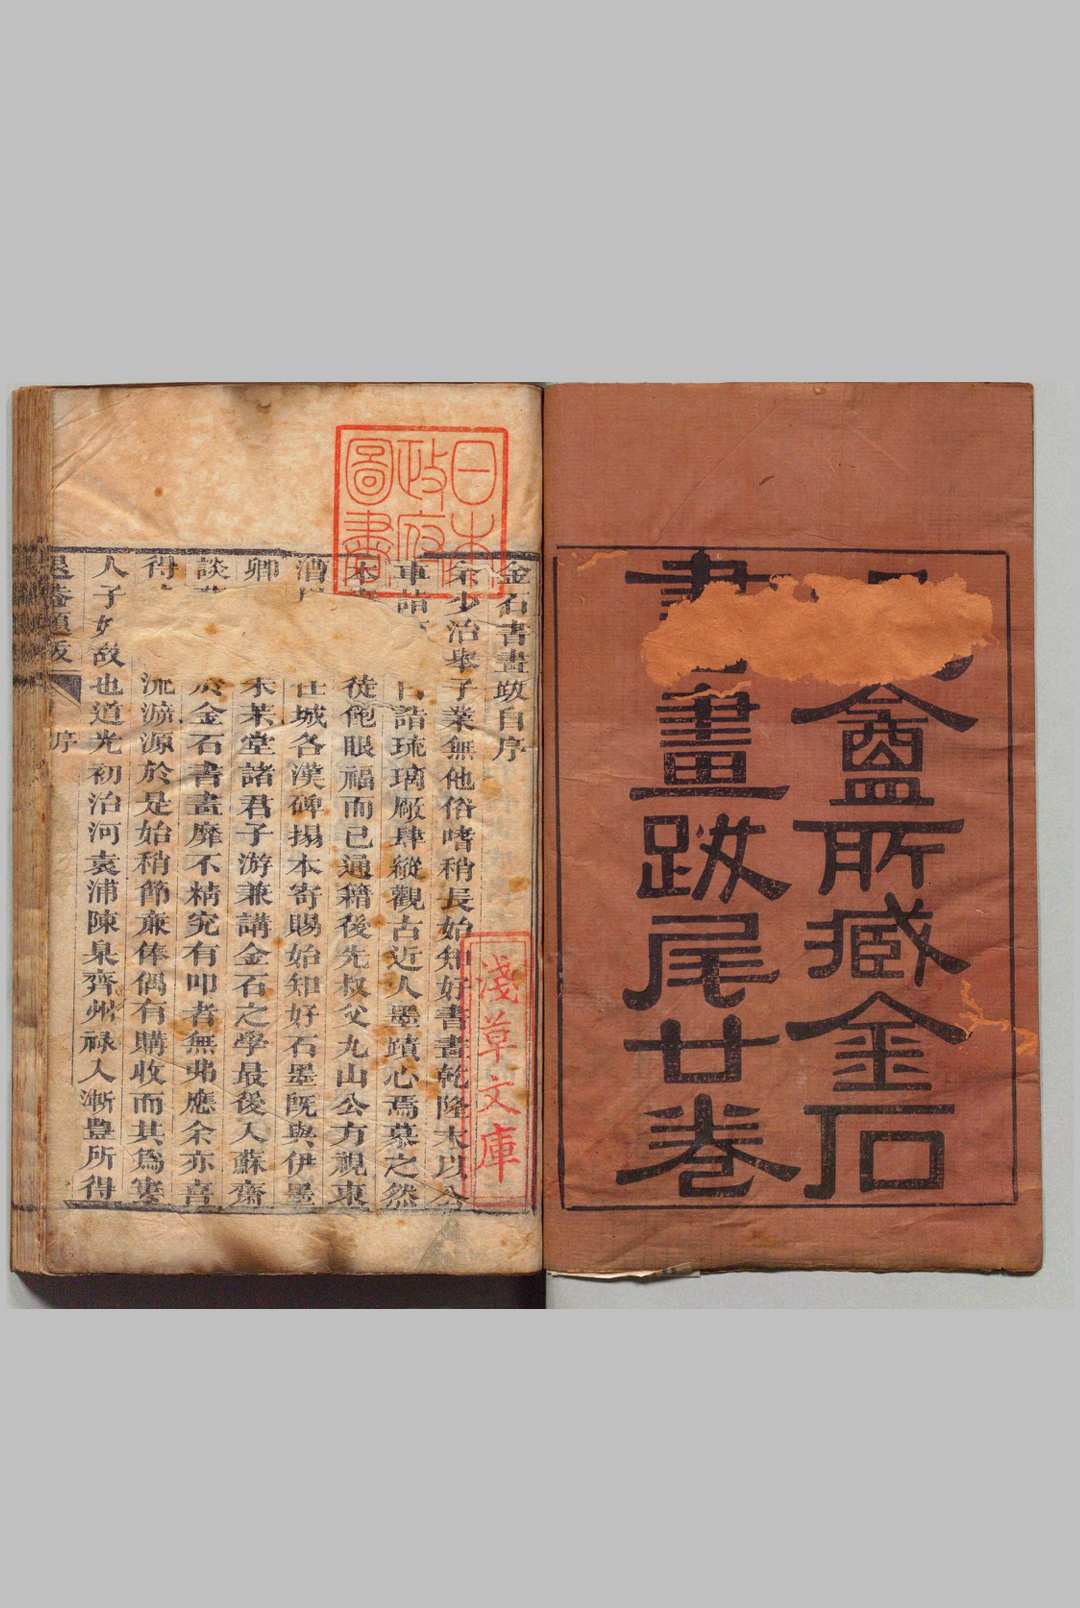 盦所藏金石
書畫跋尾廿卷
日本
政府
圖書
淺草文庫
金石書畫跋自序
余少治舉子業無他俗嗜稍長始知好書畫乾隆末以公
車詣 詣琉璃廠肆縱觀古近人墨蹟心焉慕之然
徒飽眼福而已通籍後先叔父九山公方視東
任城各漢碑搨本寄賜始知好石墨旣與伊墨
卿 末茮堂諸君子游兼講金石之學最後入蘇齋
談 於金石書畫靡不精究有叩者無弗應余亦喜
得 流溯源於是始稍節廉俸偶有購收而其爲寒
人子如故也道光初治河袁浦陳臬齊州祿入漸豐所得
退菴題跋 序